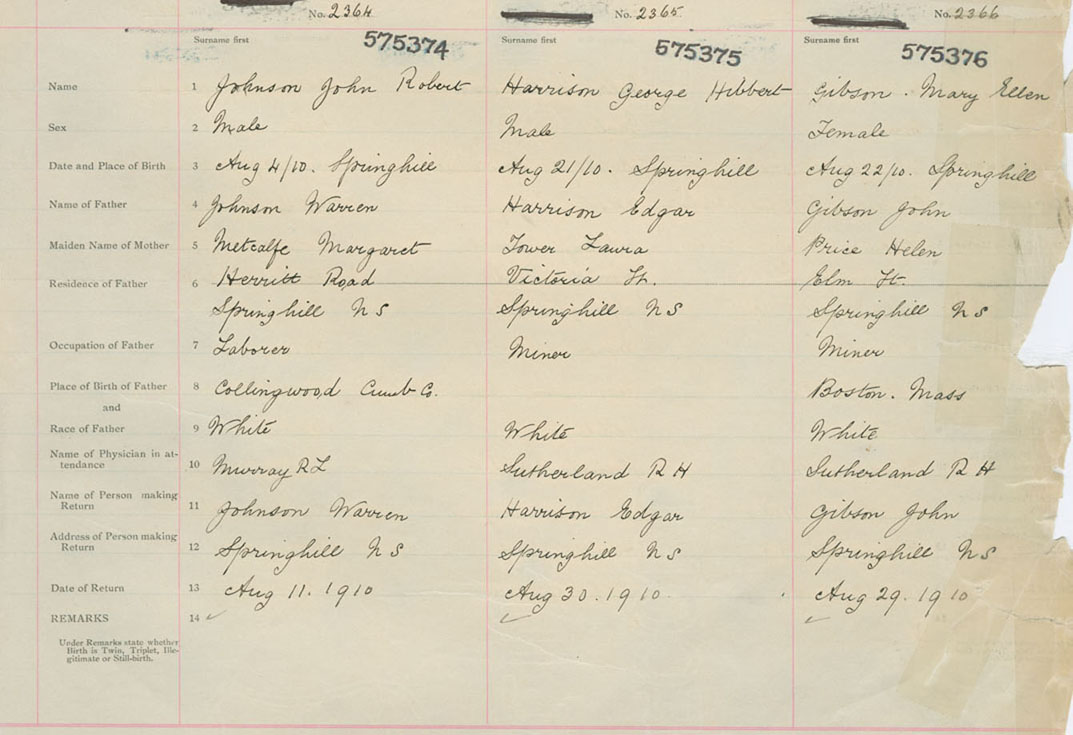 No. 2364 No. 2365 No. 2366
Surname first 575374 Surname first 575375 Surname first 575376
Name 1 Johnson John Robert Harrison George Hibbert Gibson. Mary Ellen
Sex 2 Male Male Female
Date and Place of Birth 3 Aug 4/10. Springhill Aug 21/10. Springhill Aug 22/10. Springhill
Name of Father 4 Johnson Warren Harrison Edgar Gibson John
Maiden Name of Mother 5 Metcalfe Margaret Tower Laura Price Helen
Residence of Father 6 Herritt Road Victoria St. Elm St.
Springhill N S Springhill N S Springhill N S
Occupation of Father 7 Laborer Miner Miner
Place of Birth of Father 8 Collingwood Cumb Co. Boston. Mass
and
Race of Father 9 White White White
Name of Physician in at-
tendance 10 Murray R L Sutherland R H Sutherland R H
Name of Person making
Return 11 Johnson Warren Harrison Edgar Gibson John
Address of Person making
Return 12 Springhill N S Springhill N S Springhill N S
Date of Return 13 Aug 11. 1910 Aug 30. 1910. Aug 29. 1910
REMARKS 14
Under Remarks state whether
Birth is Twin, Triplet, Ille-
gitimate or Still-birth.